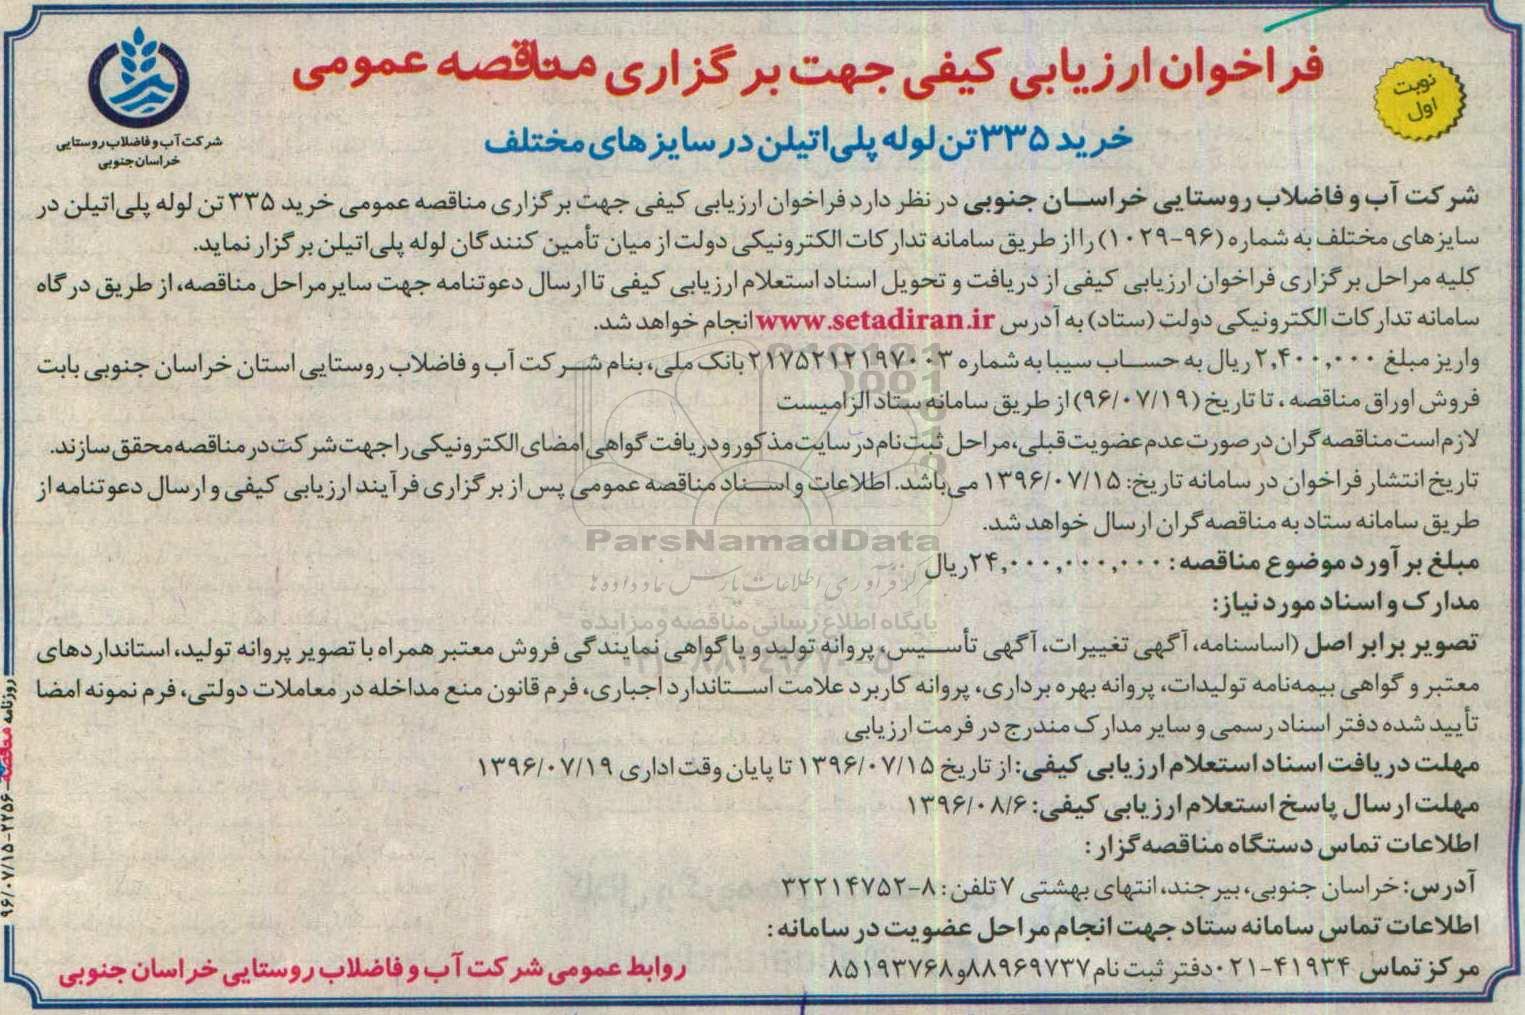 نوبت اول
فراخوان ارزیابی کیفی جهت برگزاری مناقصه عمومی
خرید ۳۳۵ تن لوله پلی‌اتیلن در سایزهای مختلف
شرکت آب و فاضلاب روستایی
خراسان جنوبی
شرکت آب و فاضلاب روستایی خراسان جنوبی در نظر دارد فراخوان ارزیابی کیفی جهت برگزاری مناقصه عمومی خرید ۳۳۵ تن لوله پلی‌اتیلن در
سایزهای مختلف به شماره (۹۶-۱۰۲۹) را از طریق سامانه تدارکات الکترونیکی دولت از میان تأمین کنندگان لوله پلی‌اتیلن برگزار نماید.
کلیه مراحل برگزاری فراخوان ارزیابی کیفی از دریافت و تحویل اسناد استعلام ارزیابی کیفی تا ارسال دعوتنامه جهت سایر مراحل مناقصه، از طریق درگاه
سامانه تدارکات الکترونیکی دولت (ستاد) به آدرس www.setadiran.ir انجام خواهد شد.
واریز مبلغ ۲,۴۰۰,۰۰۰ ریال به حساب سیبا به شماره ۲۱۷۵۲۱۲۱۹۷۰۰۳ بانک ملی، بنام شرکت آب و فاضلاب روستایی استان خراسان جنوبی بابت
فروش اوراق مناقصه ، تا تاریخ (۹۶/۰۷/۱۹) از طریق سامانه ستاد الزامیست
لازم است مناقصه‌گران در صورت عدم عضویت قبلی، مراحل ثبت نام در سایت مذکور و دریافت گواهی امضای الکترونیکی را جهت شرکت در مناقصه محقق سازند.
تاریخ انتشار فراخوان در سامانه تاریخ: ۱۳۹۶/۰۷/۱۵ می‌باشد. اطلاعات و اسناد مناقصه عمومی پس از برگزاری فرآیند ارزیابی کیفی و ارسال دعوتنامه از
طریق سامانه ستاد به مناقصه گران ارسال خواهد شد.
مبلغ برآورد موضوع مناقصه: ۲۴,۰۰۰,۰۰۰,۰۰۰ ریال
مدارک و اسناد مورد نیاز:
تصویر برابر اصل (اساسنامه، آگهی تغییرات، آگهی تأسیس، پروانه تولید و یا گواهی نمایندگی فروش معتبر همراه با تصویر پروانه تولید، استانداردهای
معتبر و گواهی بیمه‌نامه تولیدات، پروانه بهره برداری، پروانه کاربرد علامت استاندارد اجباری، فرم قانون منع مداخله در معاملات دولتی، فرم نمونه امضا
تأیید شده دفتر اسناد رسمی و سایر مدارک مندرج در فرمت ارزیابی
مهلت دریافت اسناد استعلام ارزیابی کیفی: از تاریخ ۱۳۹۶/۰۷/۱۵ تا پایان وقت اداری ۱۳۹۶/۰۷/۱۹
مهلت ارسال پاسخ استعلام ارزیابی کیفی: ۱۳۹۶/۰۸/۶
اطلاعات تماس دستگاه مناقصه‌گزار:
آدرس: خراسان جنوبی، بیرجند، انتهای بهشتی ۷ تلفن: ۸-۳۲۲۱۴۷۵۲
اطلاعات تماس سامانه ستاد جهت انجام مراحل عضویت در سامانه:
مرکز تماس ۴۱۹۳۴-۰۲۱ دفتر ثبت نام ۸۸۹۶۹۷۳۷ و ۸۵۱۹۳۷۶۸
روابط عمومی شرکت آب و فاضلاب روستایی خراسان جنوبی
روزنامه مناقصه - ۲۲۵۶ - ۹۶/۰۷/۱۵
ParsNamadData
مرکز فرآوری اطلاعات پارس نماد داده‌ها
پایگاه اطلاع رسانی مناقصه و مزایده